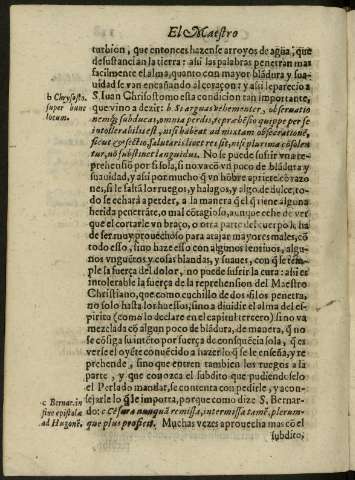 El Maestro
turbion, que entonces hazense arroyos de agua, que
desustancian la tierra: assi las palabras penetran mas
facilmente el alma, quanto con mayor blãdura y sua-
uidad se van encañando al coraçon: y assi le parecio a
S. Iuan Chrisostomo esta condicion tan importante,
que vino a dezir: b Si arguas vehementer, obseruatio
nemq; subducas, omnia perdis, reprahẽsio quippe per se
intollerabilis est, nisi habeat admixtam obsecrationẽ,
sicut & sectio, salutaris licet res sit, nisi plurima cõsolen
tur, nõ substinet languidus. No se puede sufrir vna re-
prehension por si sola, si no va cõ vn poco de blãdura y
suauidad, y assi por mucho q̃ vn hõbre apriete cõ razo
nes, si le faltã los ruegos, y halagos, y algo de dulce, to-
do se echará a perder, a la manera q̃ el q̃ tiene alguna
herida penetrãte, o mal cõtagioso, aunque eche de ver
que el cortarle vn braço, o otra parte del cuerpo le ha
de ser muy prouechoso para atajar mayores males, cõ
todo esso, sino haze esso con algunos lenitiuos, algu-
nos vnguẽtos y cosas blandas, y suaues, con q̃ se tem-
ple la fuerça del dolor, no puede sufrir la cura: assi es
intolerable la fuerça de la reprehension del Maestro
Christiano, que como cuchillo de dos filos penetra,
no solo hasta los huessos, sino a diuidir el alma del es-
piritu (como lo declare en el capitulo tercero) si no va
mezclada cõ algun poco de blãdura, de manera, q̃ no
se cõsiga su intẽto por fuerça de consequẽcia sola, q̃ es
verse el oyẽte conuẽcido a hazer lo q̃ se le enseña, y re
prehende, sino que entren tambien los ruegos a la
parte, y que conozca el subdito que pudiendoselo
el Perlado mandar, se contenta con pedirle, y acon-
sejarle lo q̃ le importa, porque como dize S. Bernar-
do: c Cẽsura nunquã remissa, intermissa tamẽ, plerum-
que plus proficit. Muchas vezes aprouecha mas cõ el
subdito,
b Chrysosto.
super hunc
locum.
c Bernar. in
fine epistolæ
ad Hugonẽ.